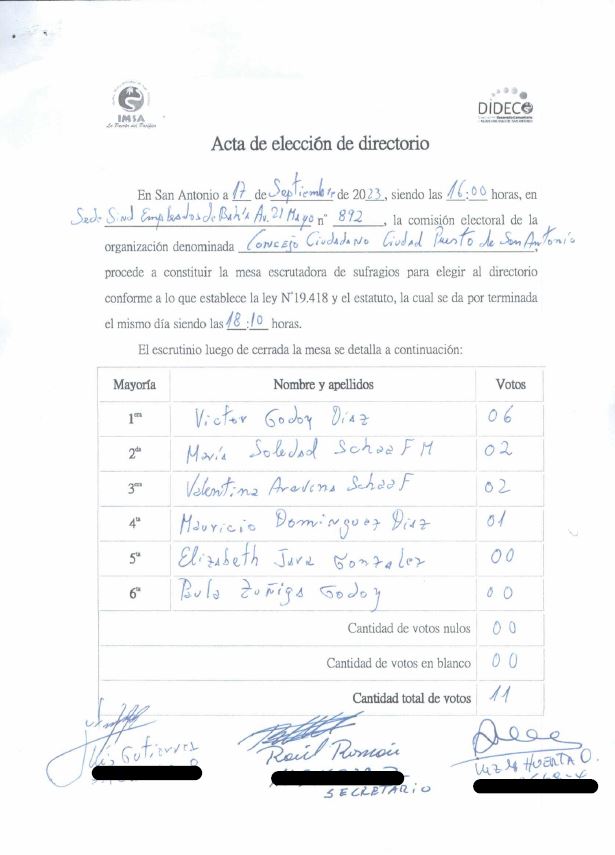 IMSA
La Puerta del Pacífico
DIDECO
Acta de elección de directorio
En San Antonio a 17 de Septiembre de 2023, siendo las 16:00 horas, en
Sede Sind Empleados de Bahía Av. 21 Mayo n° 892, la comisión electoral de la
organización denominada Concejo Ciudadano Ciudad Puerto de San Antonio
procede a constituir la mesa escrutadora de sufragios para elegir al directorio
conforme a lo que establece la ley N°19.418 y el estatuto, la cual se da por terminada
el mismo día siendo las 18:10 horas.
El escrutinio luego de cerrada la mesa se detalla a continuación:
Mayoría Nombre y apellidos Votos
1era Victor Godoy Diaz 06
2da María Soledad Schaaf M 02
3era Valentina Aravena Schaaf 02
4ta Mauricio Dominguez Diaz 01
5ta Elizabeth Jara Gonzalez 00
6ta Paula Zuñiga Godoy 00
Cantidad de votos nulos 00
Cantidad de votos en blanco 00
Cantidad total de votos 11
Gutierrez Raúl Román Huerta O.
SECRETARIO